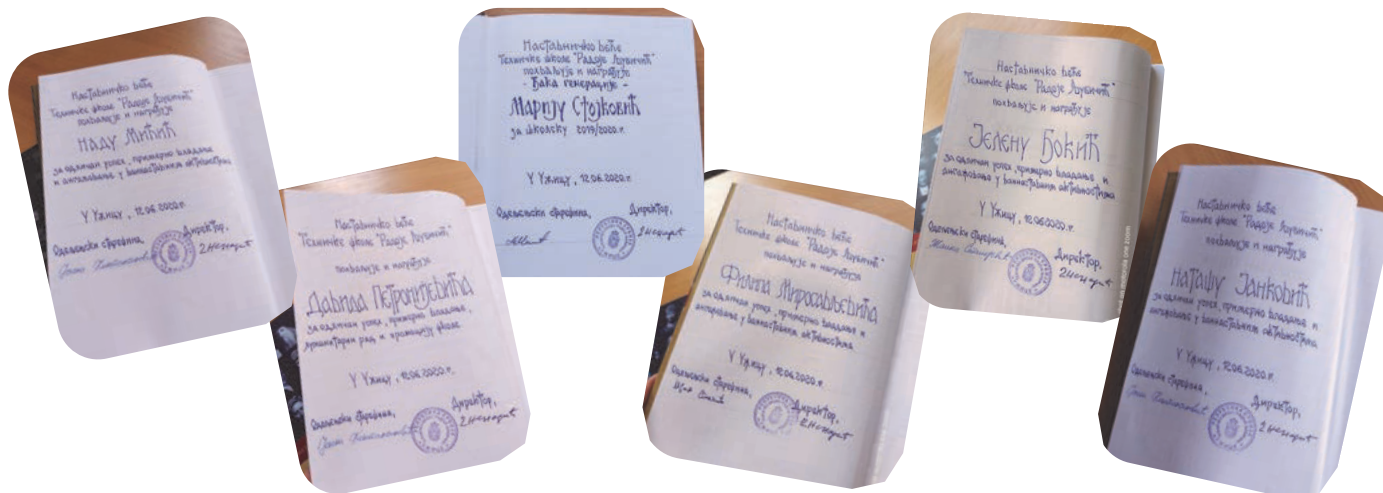 Наставничко веће
Техничке школе "Радоје Љубичић"
похваљује и награђује
НАДУ МИЋИЋ
за одличан успех, примерно владање
и ангажовање у ваннаставним активностима
У Ужицу, 12.06.2020.г.
Одељењски старешина,
Директор,
Наставничко веће
Техничке школе "Радоје Љубичић"
похваљује и награђује
Давида Петронијевића
за одличан успех, примерно владање,
хуманитарни рад и промоцију школе.
У Ужицу, 12.06.2020.г.
Одељењски старешина,
Директор,
Наставничко веће
Техничке школе "Радоје Љубичић"
похваљује и награђује
- Ђака генерације -
Марију Стојковић
за школску 2019/2020.г.
У Ужицу, 12.06.2020.г.
Одељењски старешина,
Директор,
Наставничко веће
Техничке школе "Радоје Љубичић"
похваљује и награђује
Филипа Миросављевића
за одличан успех, примерно владање и
ангажовање у ваннаставним активностима
У Ужицу, 12.06.2020.г.
Одељењски старешина,
Директор,
Наставничко веће
Техничке школе "Радоје Љубичић"
похваљује и награђује
Јелену Ђокић
за одличан успех, примерно владање и
ангажовање у ваннаставним активностима
У Ужицу, 12.06.2020.г.
Одељењски старешина,
Директор,
motorola one zoom
Наставничко веће
Техничке школе "Радоје Љубичић"
похваљује и награђује
Наташу Јанковић
за одличан успех, примерно владање и
ангажовање у ваннаставним активностима
У Ужицу, 12.06.2020.г.
Одељењски старешина,
Директор,